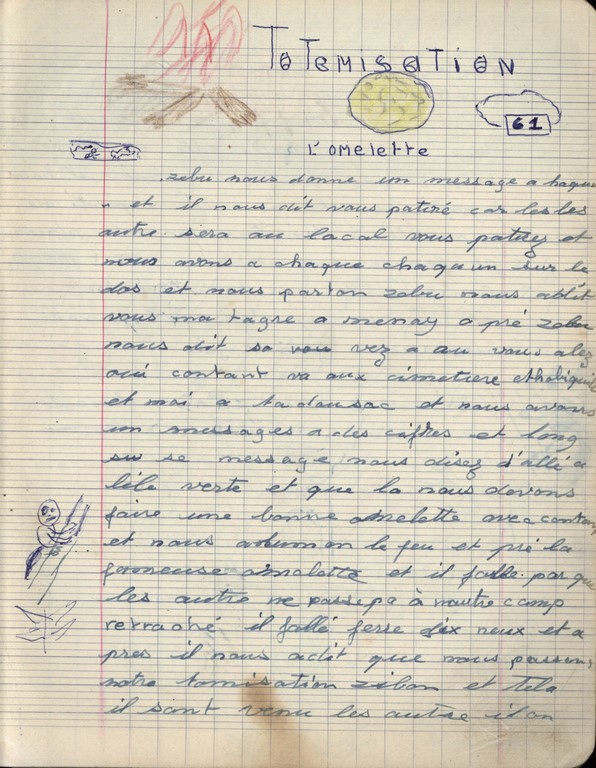 Totemisation
61
L'omelette
zebu nous donne un message a chaque
et il nous dit vous patiré car les les
autre sera au lacal vous patirez et
nous avons a chaque chaqu'un sur le
dos et nous parton zebu nous a dit
vous ma a menay a pré zebu
nous dit sa vou vez a au vous alez
oui contant va aux cimetiere
et moi a tadousac et nous avons
un messages a des cifres et long
su se message nous disez d'allé a
l'ile verte et que la nous devons
faire une bonne omelette avec
et nous alumon le feu et pré la
fameuse omelotte et il falle par que
les autre ne passe pa à nautre camp
retraché il fallé ferre dix neux et a
pres il nous a dit que nous passens
notre tomisation zibon et tela
il sont venu les autre il on